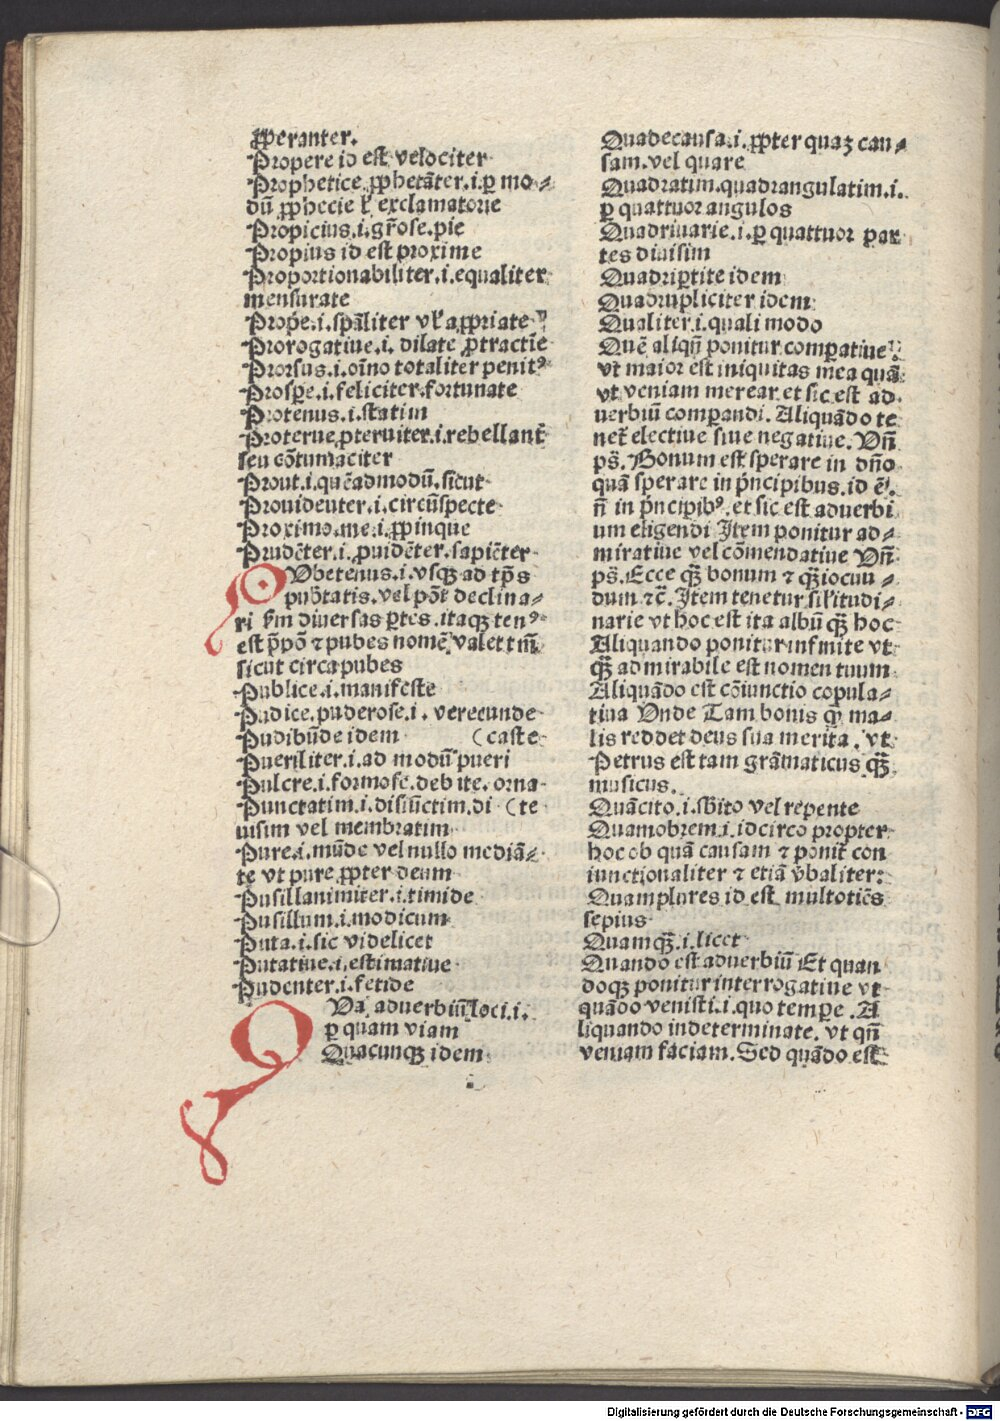 ꝓperanter.
Propere id est velociter
Prophetice ꝓphetāter.i.ꝑ mo⸗
dū ꝓphecie ł exclamatorie
Propicius.i.gr̄ose.pie
Propius id est proxime
Proportionabiliter.i.equaliter
mensurate
Prop̄e.i.spāliter vł aꝓpriate
Prorogatiue.i. dilate ꝓtractīe
Prorsus.i.oīno totaliter penitꝰ
Prosꝑe.i.feliciter.fortunate
Protenus.i.statim
Proterue ꝓteruiter.i.rebellant̄
seu cōtumaciter
Prout.i.quēadmodū.sicut
Prouidenter.i.circūspecte
Proximo.me.i.ꝓpinque
Prudēter.i.ꝓuidēter.sapiēter
PUbetenus.i.vsqꝫ ad tp̄s
pub̄tatis.vel pōt declina⸗
ri ẜm diuersas ꝑtes.itaqꝫ tenꝰ
est p̄pō ⁊ pubes nomē.valet tm̄
sicut circa pubes
Publice.i.manifeste
Pudice.puderose.i. verecunde
Pudibūde idem (caste
Pueriliter.i.ad modū pueri
Pulcre.i.formose.debite.orna
Punctatim.i.disiūctim.di (te
uisim vel membratim
Pure.i.mūde vel nullo mediā⸗
te vt pure ꝓpter deum
Pusillanimiter.i.timide
Pusillum.i.modicum
Puta.i.sic videlicet
Putatiue.i.estimatiue
Pudenter.i.fetide
QUa aduerbiū loci.i.
ꝑ quam viam
Quacunqꝫ idem
Quadecausa.i.ꝓpter quaꝫ cau⸗
sam.vel quare
Quadratim.quadrangulatim.i.
ꝑ quattuor angulos
Quadriuarie.i.ꝑ quattuor par
tes diuisim
Quadriꝑtite idem
Quadrupliciter idem
Qualiter.i.quali modo
Quē aliqn̄ ponitur comꝑatiue
vt maior est iniquitas mea quā
vt veniam merear.et sic est ad
uerbiū comꝑandi. Aliquādo te
net̄ electiue siue negatiue. Vn̄
ps̄. Bonum est sperare in dn̄o
quā sperare in p̄ncipibus.id ē.
n̄ in p̄ncipibꝰ.et sic est aduerbi
um eligendi Item ponitur ad⸗
miratiue vel cōmendatiue Vn̄
ps̄. Ecce qꝫ̄ bonum ⁊ qꝫ̄ iocun⸗
dum ⁊c̄. Item tenetur siłitudi⸗
narie vt hoc est ita albū qꝫ̄ hoc
Aliquando ponitur infinite vt
qꝫ̄ admirabile est nomen tuum
Aliquādo est cōiunctio copula⸗
tiua Vnde Tam bonis qꝫ̄ ma⸗
lis reddet deus sua merita. vt
Petrus est tam grāmaticus qꝫ̄
musicus.
Quācito.i.sb̄ito vel repente
Quamobrem.i.idcirco propter
hoc ob quā causam ⁊ ponit̄ con
iunctionaliter ⁊ etiā v̄baliter:
Quamplures id est multotiēs
sepius
Quamqꝫ̄.i.licet
Quando est aduerbiū Et quan
doqꝫ ponitur interrogatiue vt
quādo venisti.i.quo tempe. A
liquando indeterminate. vt qn̄
veniam faciam. Sed quādo est
Digitalisierung gefördert durch die Deutsche Forschungsgemeinschaft - DFG